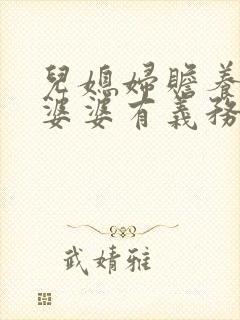 兒媳婦贍養
婆婆有義務
武婧雅